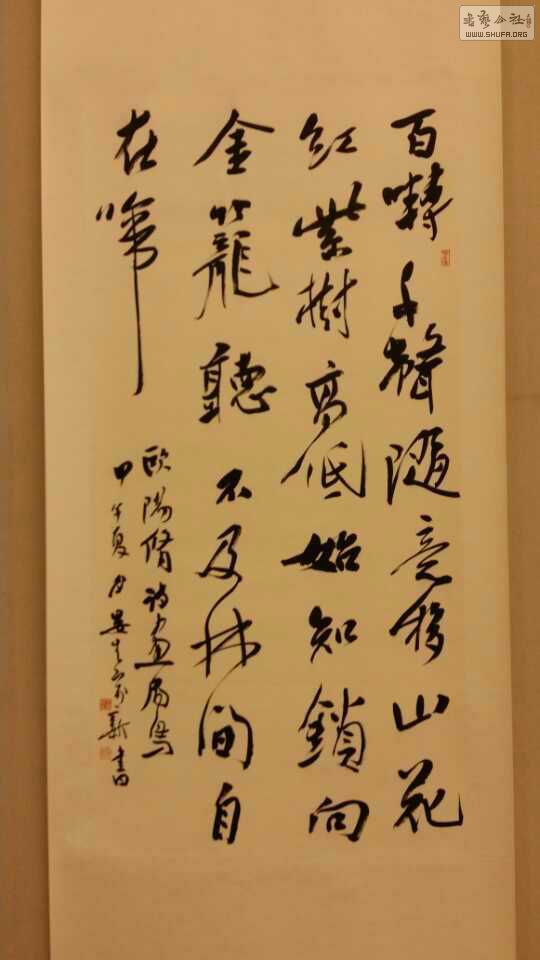 百囀千聲隨意移山花
紅紫樹高低始知鎖向
金籠聽不及林間自
在啼
歐陽脩詩畫眉鳥
甲午夏月
書
WWW.SHUFA.ORG